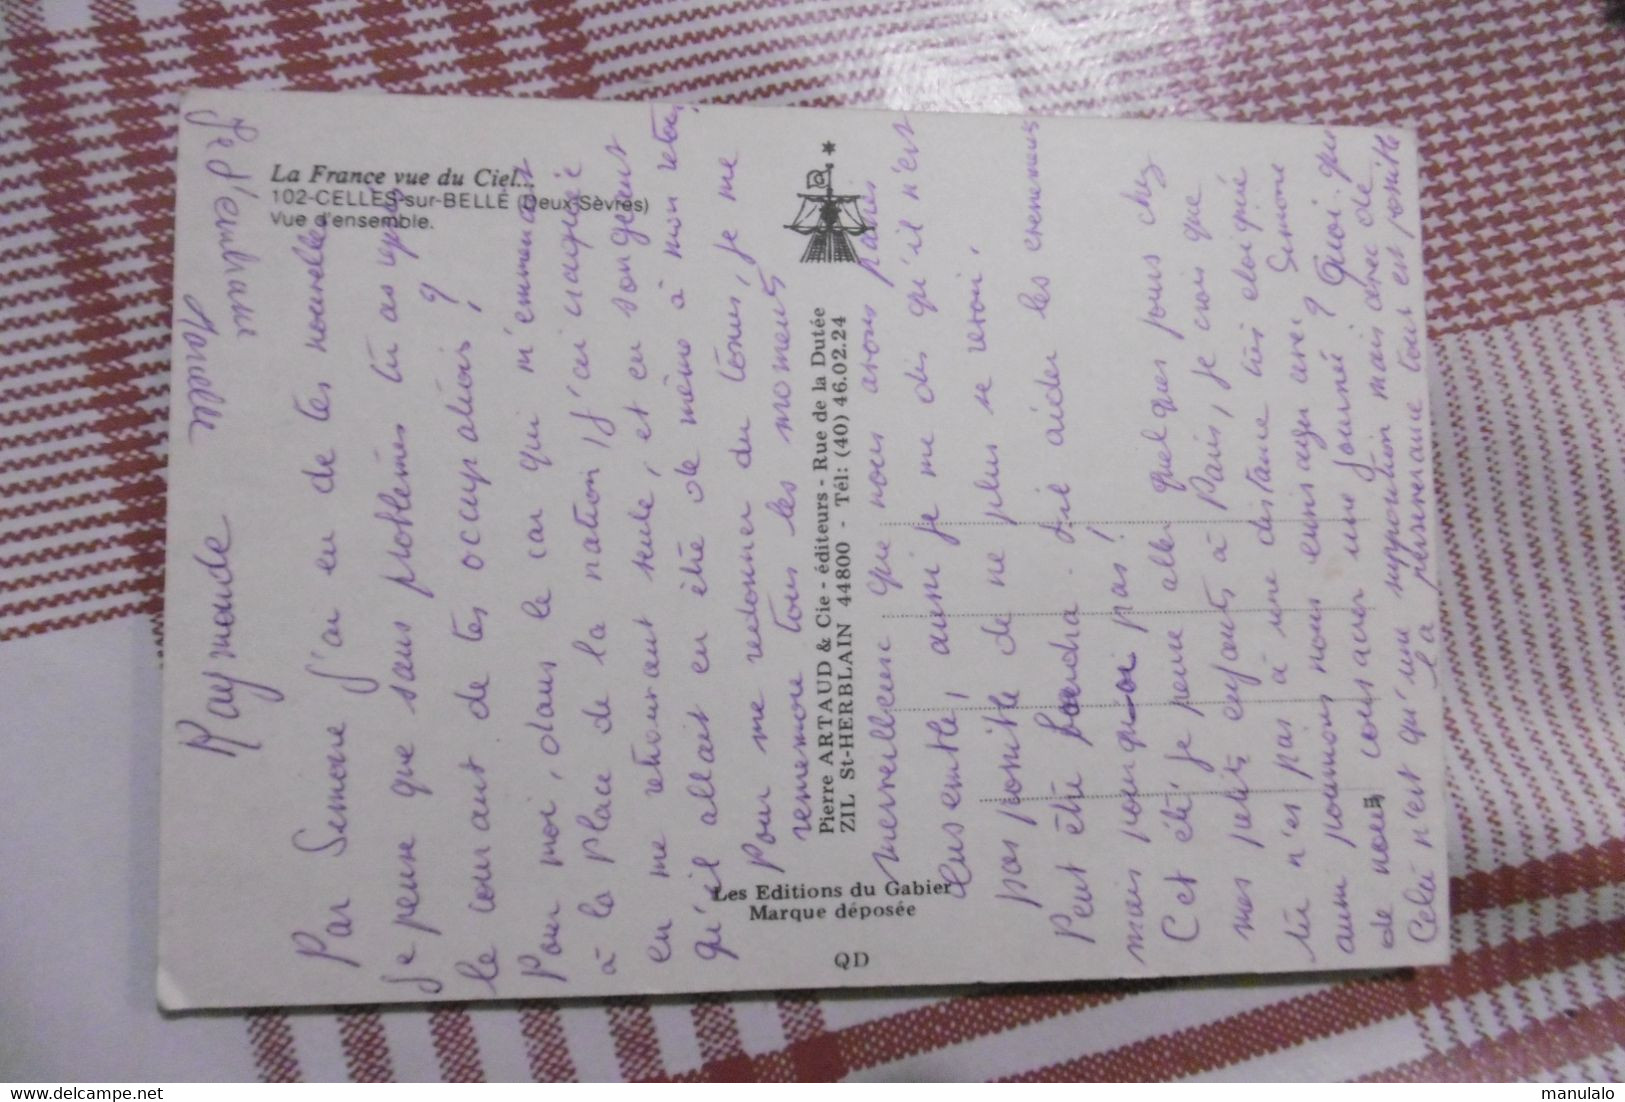 La France vue du Ciel...
102-CELLES-sur-BELLE (Deux-Sèvres)
Vue d'ensemble.
Raymonde
Je t'embrasse
Par Simone j'ai eu de tes nouvelles
Je pense que sans problèmes tu as repris
le courant de tes occupations ?
Pour moi, dans le car qui m'emmenait
à la place de la nation, j'ai
en me retrouvant seule, et en songeant
qu'il allait en être de même à mon retour,
Pour me redonner du tonus, je me
remémore tous les moments
merveilleux que nous avons passés
ensemble, aussi je me dis qu'il n'est
pas possible de ne plus se revoir.
Peut être faudra-t-il aider les
mais pourquoi pas !
Cet été, je pense aller quelques jours chez
mes petits enfants à Paris, je crois que
tu n'es pas à une distance très éloignée
aussi pourrions nous envisager avec Simone
de nous consacrer une journée ? Quoi que
Cela n'est qu'une supposition mais avec de
la persévérance tout est possible
Pierre ARTAUD & Cie - éditeurs - Rue de la Dutée
ZIL St-HERBLAIN 44800 - Tél: (40) 46.02.24
Les Editions du Gabier
Marque déposée
QD
delcampe.net
manulalo